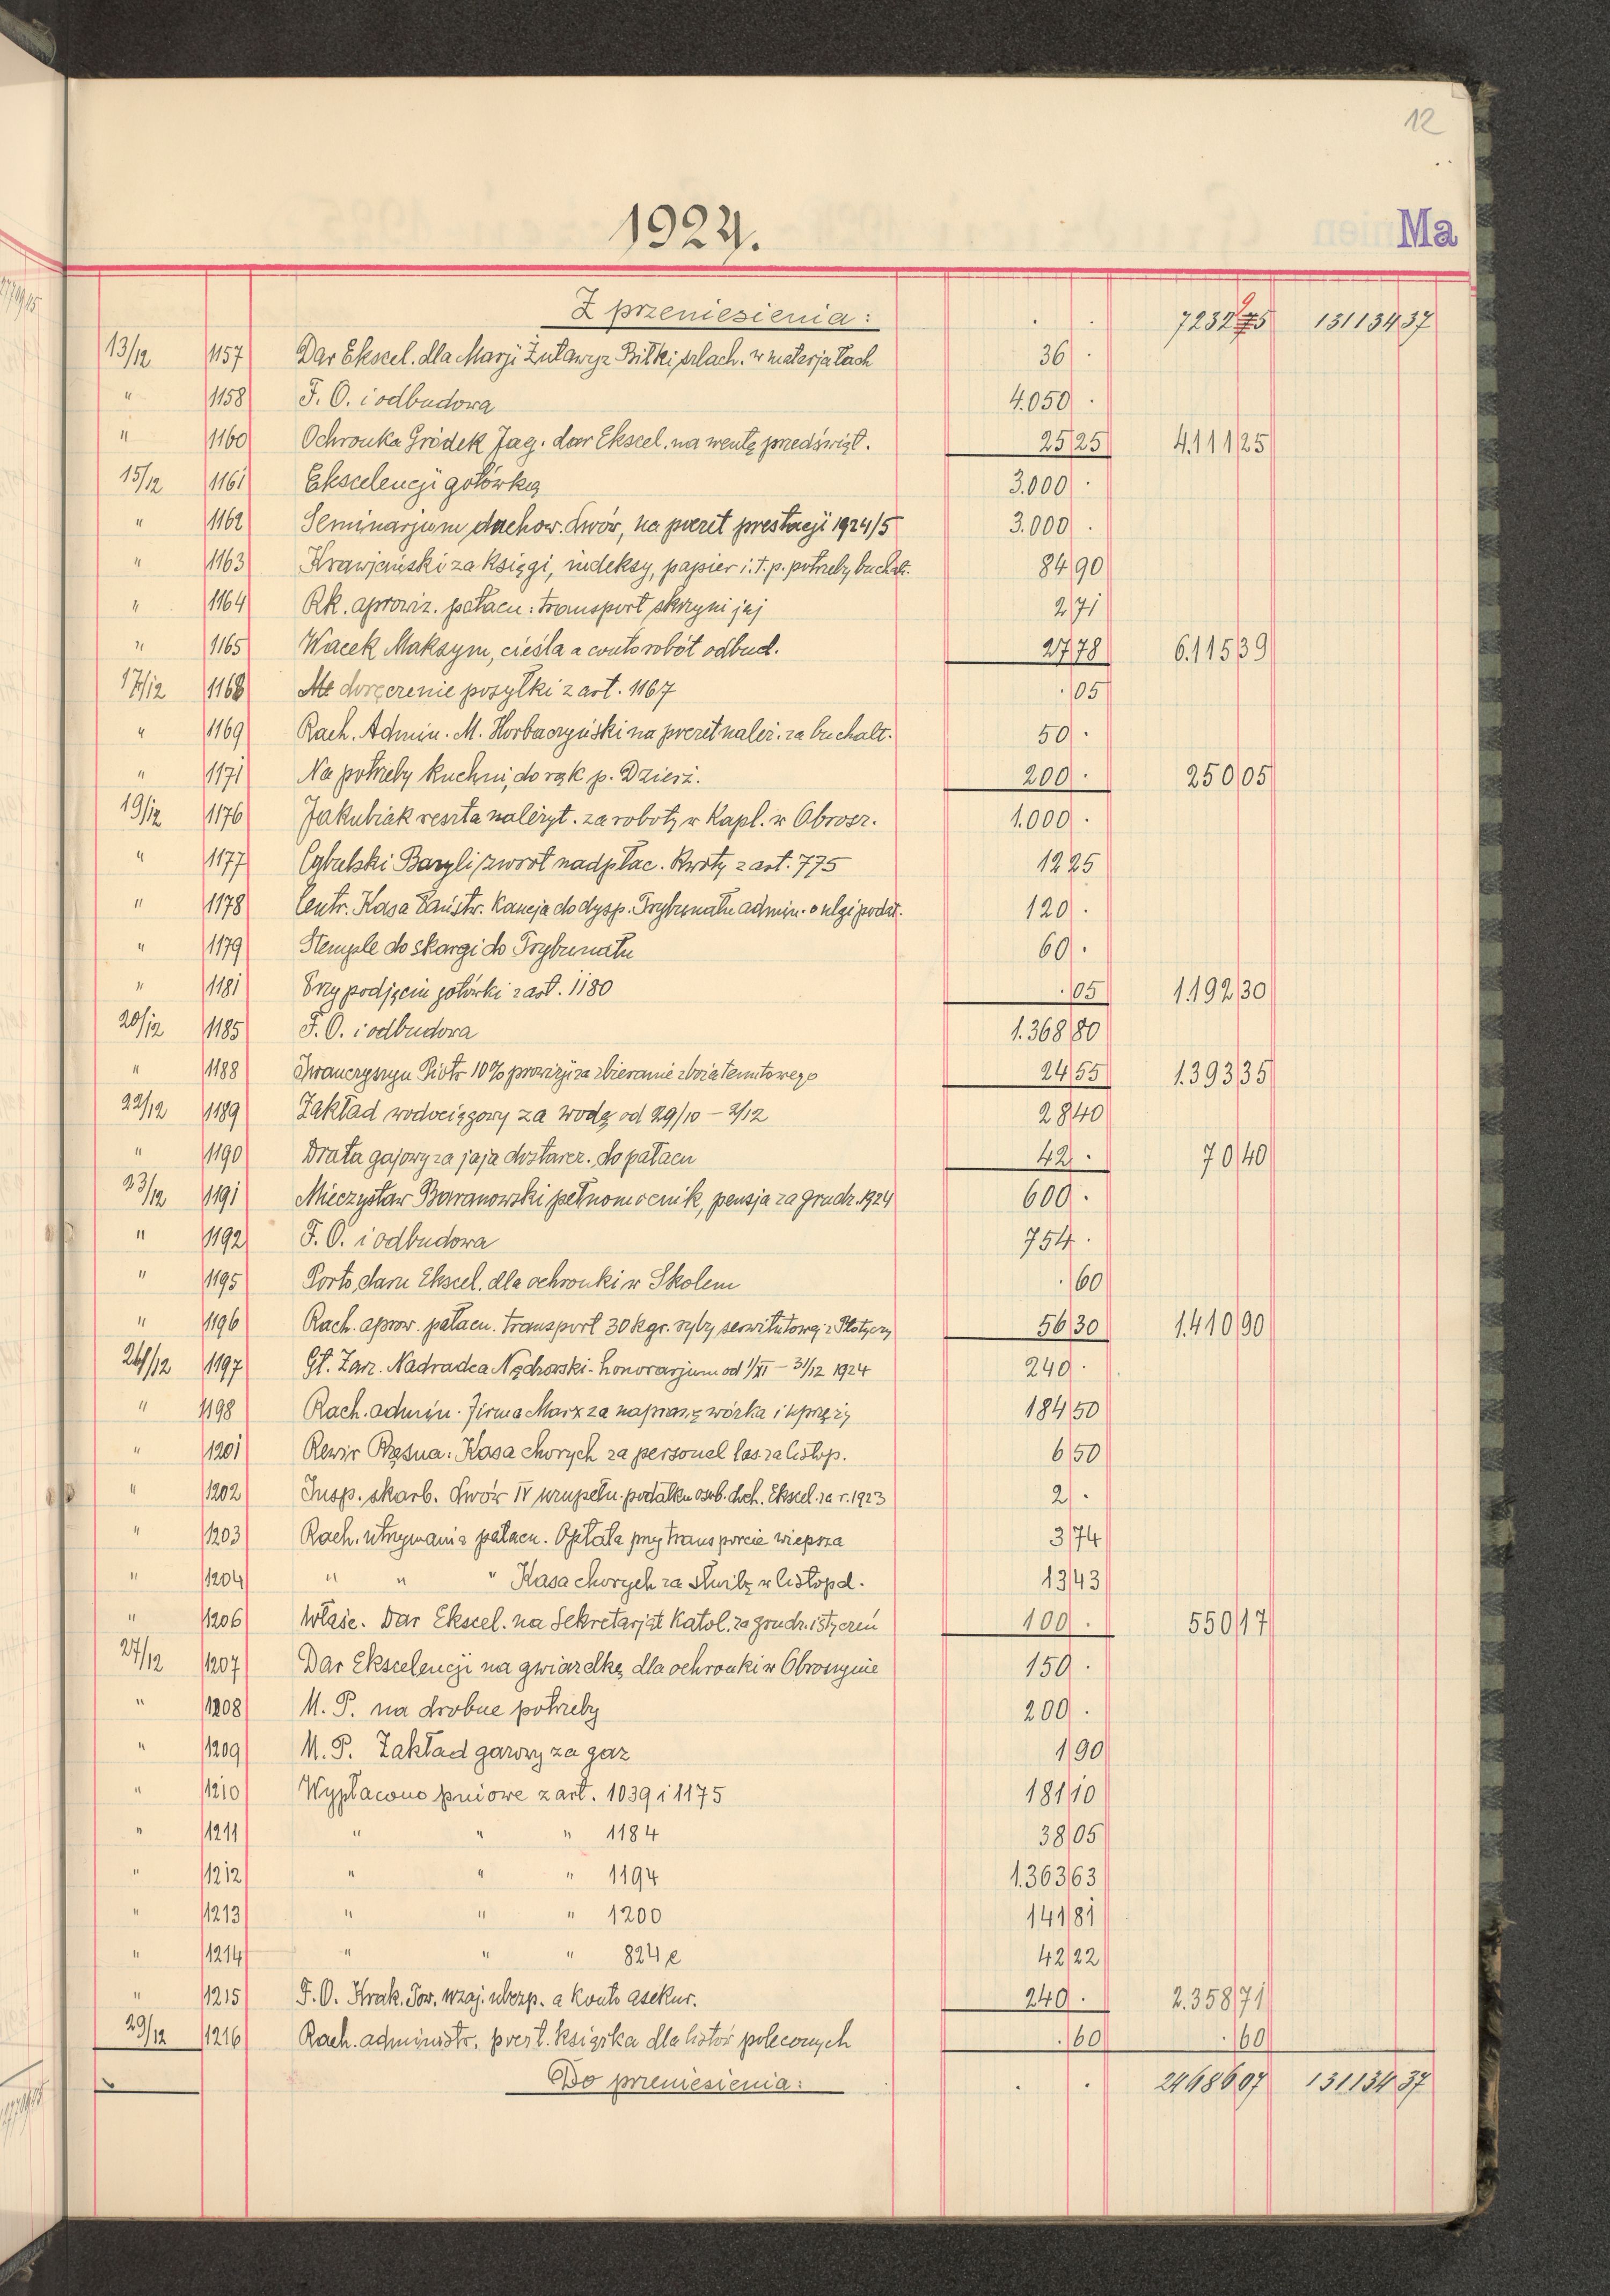 12
1924.
Ma
Z przeniesienia: . . 7232 95 131134 37
13/12 1157 Dar Ekscel. dla Marji Żuławy z Biłki szlach. w materjałach 36 .
" 1158 F. O. i odbudowa 4.050 .
" 1160 Ochronka Gródek Jag. dar Ekscel. na wentę przedświąt. 25 25 4.111 25
15/12 1161 Ekscelencji gotówką 3.000 .
" 1162 Seminarjum duchow. Lwów, na poczet prestacji 1924/5 3.000 .
" 1163 Krawjański za księgi, indeksy, papier i.t.p. potrzeby buchalt. 84 90
" 1164 Rk. aprowiz. pałacu: transport skrzyni jaj 2 71
" 1165 Wacek Maksym, cieśla a conto robót odbud. 27 78 6.115 39
17/12 1168 doręczenie posyłki z art. 1167 . 05
" 1169 Rach. Admin. M. Horbaczyński na poczet należ. za buchalt. 50 .
" 1171 Na potrzeby kuchni, do rąk p. Dzierż. 200 . 250 05
19/12 1176 Jakubiak reszta należyt. za roboty w Kapl. w Obrosz. 1.000 .
" 1177 Cybulski Bazyli zwrot nadpłac. kwoty z art. 775 12 25
" 1178 Centr. Kasa Państw. Kaucja do dysp. Trybunału admin. o ulgi podat. 120 .
" 1179 Stemple do skargi do Trybunału 60 .
" 1181 Przy podjęciu gotówki z art. 1180 . 05 1.192 30
20/12 1185 F. O. i odbudowa 1.368 80
" 1188 Iwanczyszyn Piotr 10% prowizji za zbieranie zboża tenutowego 24 55 1.393 35
22/12 1189 Zakład wodociągowy za wodę od 29/10 – 2/12 28 40
" 1190 Drata gajowy za jaja dostarcz. do pałacu 42 . 70 40
23/12 1191 Mieczysław Baranowski pełnomocnik, pensja za grudz. 1924 600 .
" 1192 F. O. i odbudowa 754 .
" 1195 Porto, daru Ekscel. dla ochronki w Skolem . 60
" 1196 Rach. aprow. pałacu. transport 30 kgr. ryby serwitutowej z Płotyczy 56 30 1.410 90
24/12 1197 Gł. Zarz. Nadradca Nędzowski - honorarjum od 1/XI – 31/12 1924 240 .
" 1198 Rach. admin. Firma Marx za naprawę wózka i uprzęży 184 50
" 1201 Rewir Rzęsna: Kasa chorych za personel las. za listop. 6 50
" 1202 Insp. skarb. Lwów IV uzupełn. podatku osob. doch. Ekscel. za r. 1923 2 .
" 1203 Rach. utrzymania pałacu. Opłata przy transporcie wieprza 3 74
" 1204 " " " Kasa chorych za służbę w listopd. 13 43
" 1206 Właśc. Dar Ekscel. na Sekretarjat Katol. za grudz. i styczeń 100 . 550 17
27/12 1207 Dar Ekscelencji na gwiazdkę dla ochronki w Obroszynie 150 .
" 1208 M. P. na drobne potrzeby 200 .
" 1209 M. P. Zakład gazowy za gaz 1 90
" 1210 Wypłacono pniowe z art. 1039 i 1175 181 10
" 1211 " " " 1184 38 05
" 1212 " " " 1194 1.363 63
" 1213 " " " 1200 141 81
" 1214 " " " 824 e 42 22
" 1215 F. O. Krak. Tow. wzaj. ubezp. a konto asekur. 240 . 2.358 71
29/12 1216 Rach. administr. poczt. książka dla listów poleconych . 60 . 60
Do przeniesienia: . . 24686 07 131134 37